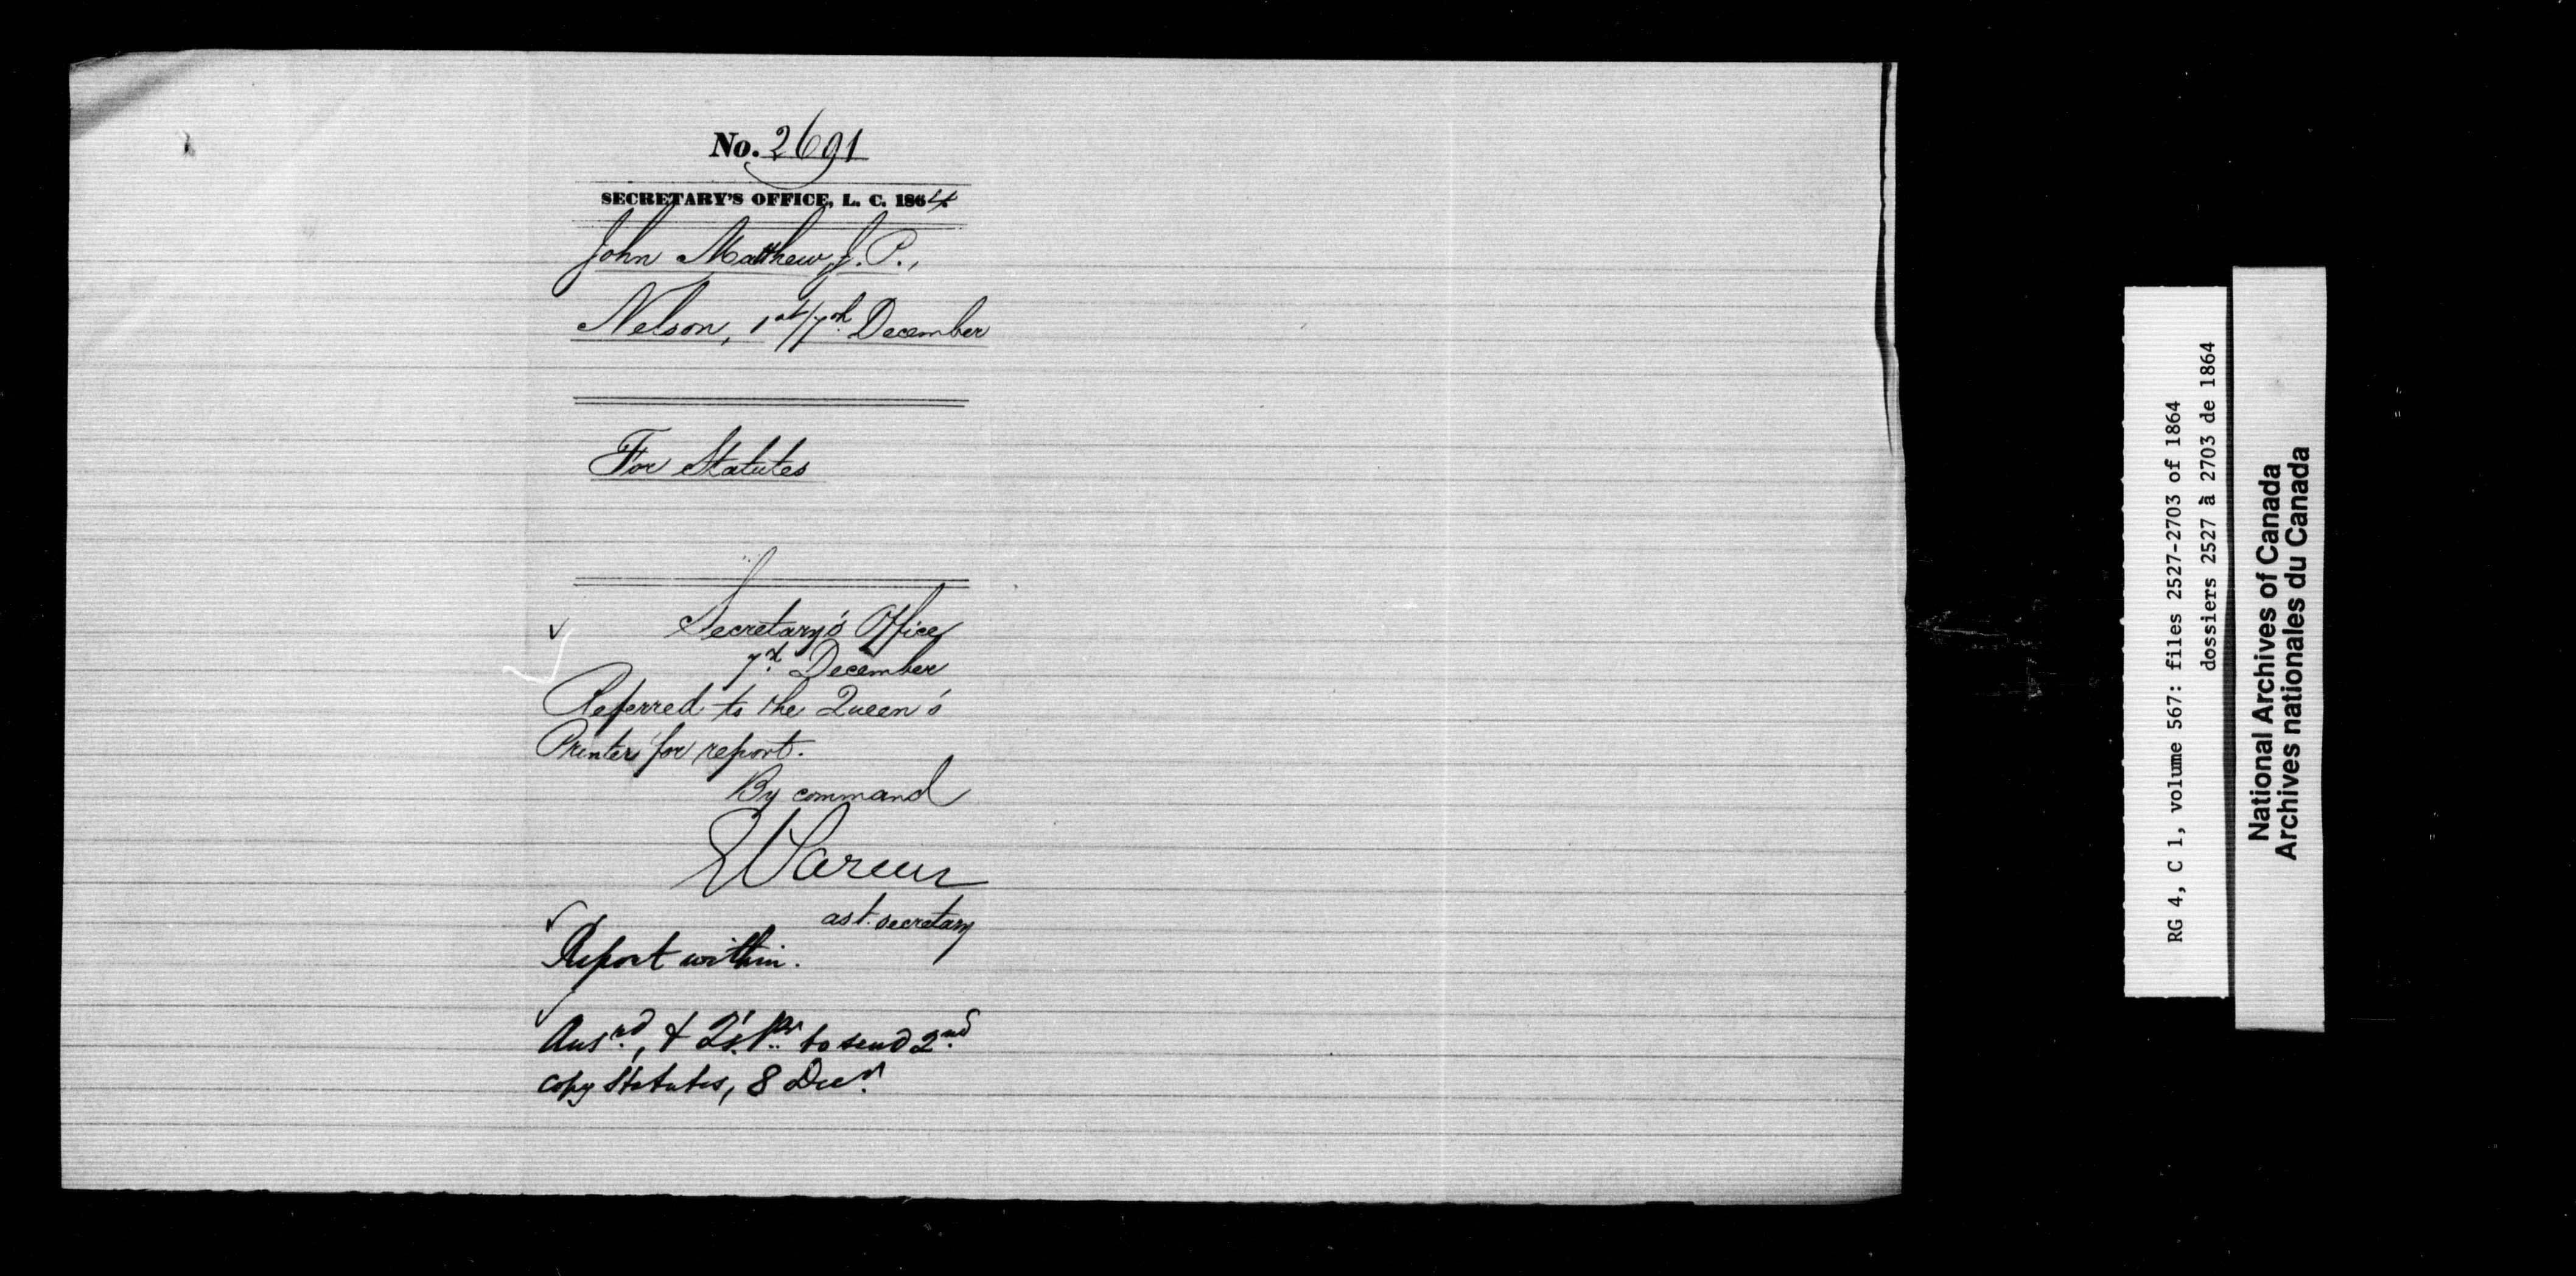 No. 2691
SECRETARY'S OFFICE, L. C. 1864
John Matthew, J. P.,
Nelson, 1st/7th December
For Statutes
Secretary's Office
7th December
Referred to the Queen's
Printer for report.
By command
ast. secretary
Report within.
Ansrd, & Q's. Pr. to send 2nd
copy Statutes, 8 Decr.
RG 4, C 1, volume 567: files 2527-2703 of 1864
dossiers 2527 à 2703 de 1864
National Archives of Canada
Archives nationales du Canada